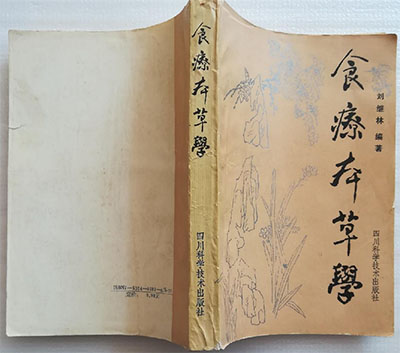 食療本草學
刘继林 编著
四川科学技术出版社
食療本草學
四川科学技术出版社